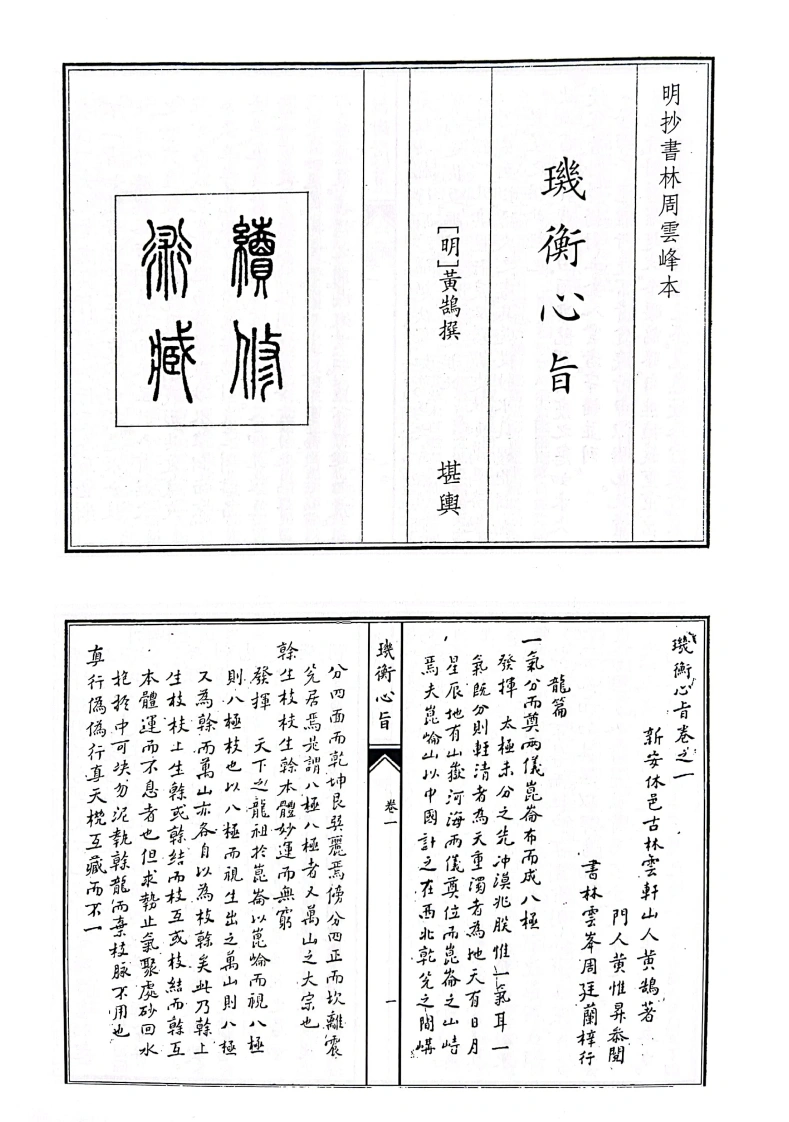 明抄書林周雲峰本
璣衡心旨
[明]黃鵠撰
堪輿
續修
術藏
璣衡心旨卷之一
新安休邑古林雲軒山人黃鵠著
門人黄惟昇叅閱
書林雲峯周廷蘭梓行
龍篇
一氣分而奠兩儀崑崙布而成八極
發揮 太極未分之先冲漠兆朕惟一氣耳一
氣既分則輕清者為天重濁者為地天有日月
星辰地有山嶽河海兩儀奠位而崑崙之山峙
焉夫崑崙山以中國計之在西北乾兊之間嵎
璣衡心旨
卷一
一
分四面而乾坤艮巽麗焉傍分四正而坎離震
兊居焉是謂八極八極者又萬山之大宗也
榦生枝枝生榦本體妙運而無窮
發揮 天下之龍祖於崑崙以崑崙而視八極
則八極枝也以八極而視生出之萬山則八極
又為榦而萬山亦各自以為枝榦矣此乃榦上
生枝枝上生榦或榦結而枝互或枝結而榦互
本體運而不息者也但求勢止氣聚處砂回水
抱於中可块勿泥執榦龍而棄枝脉不用也
真行偽偽行真天機互藏而不一